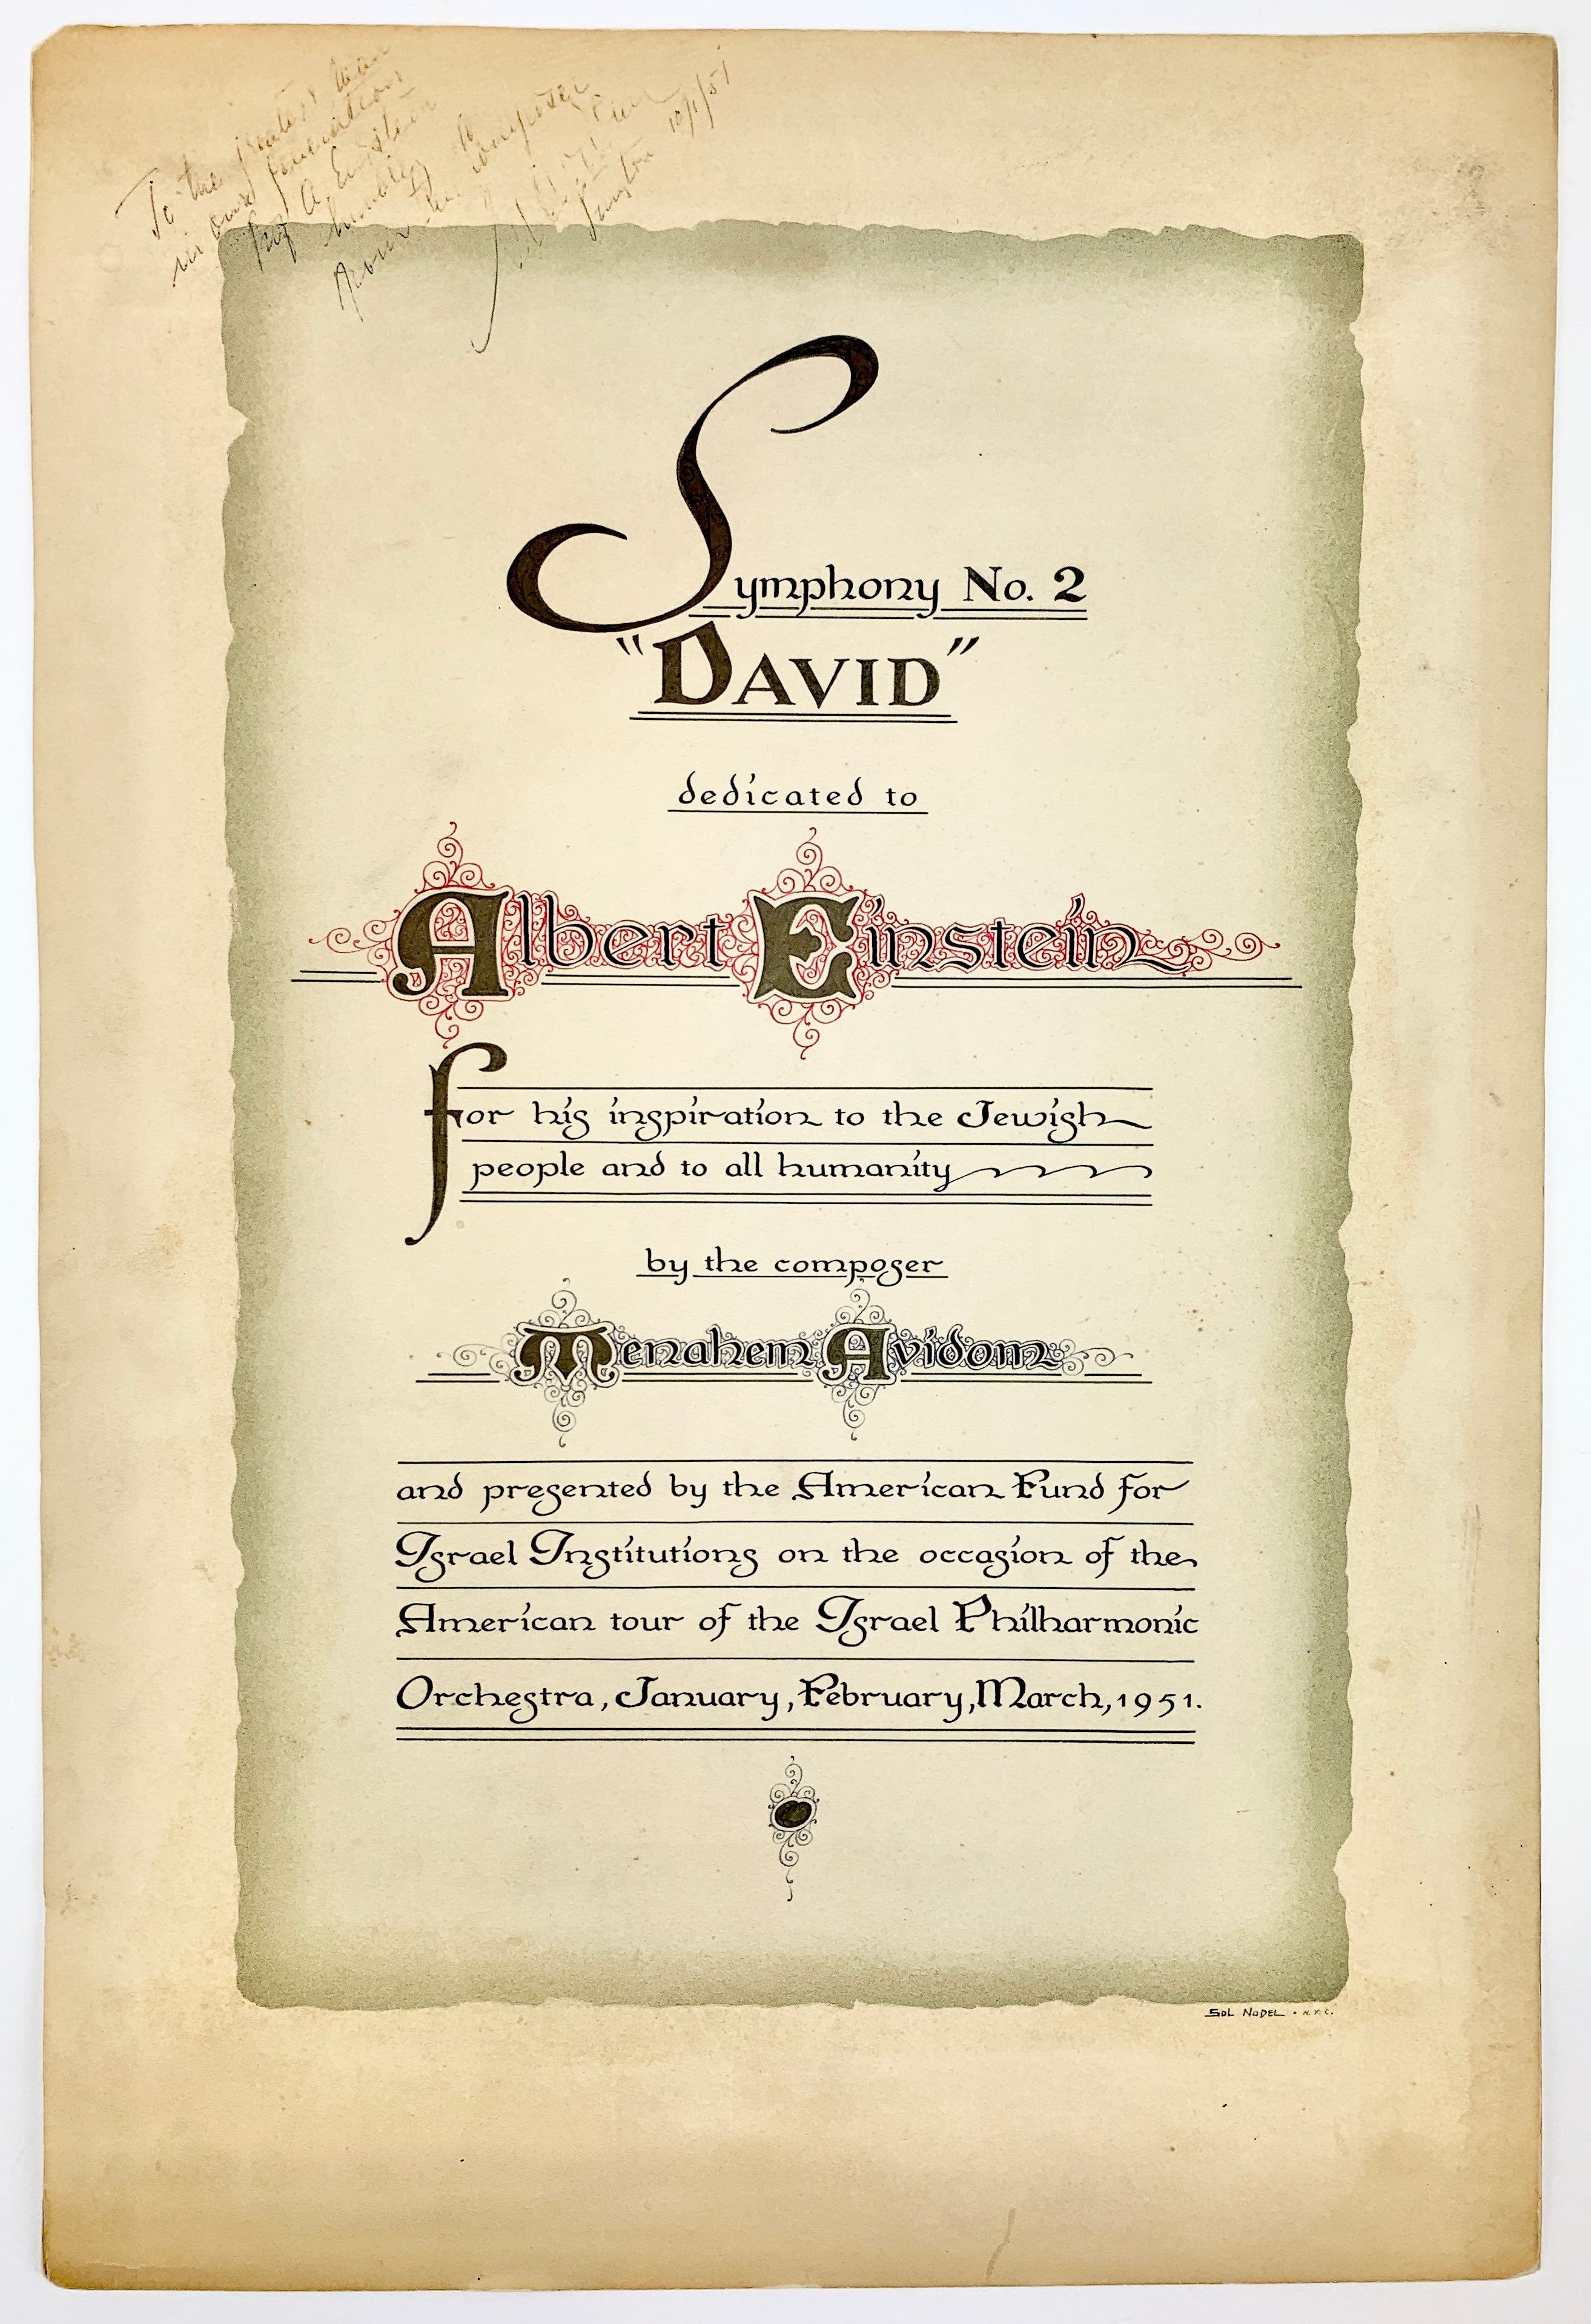 To the greatest man
in our generation
Prof A. Einstein
humbly
from the composer
Princeton 10/1/51
Symphony No. 2
"DAVID"
dedicated to
Albert Einstein
for his inspiration to the Jewish
people and to all humanity
by the composer
Menahem Avidom
and presented by the American Fund for
Israel Institutions on the occasion of the
American tour of the Israel Philharmonic
Orchestra, January, February, March, 1951.
SOL NODEL · N.Y.C.